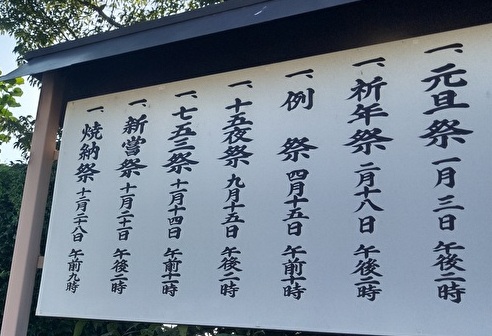 一、元旦祭 一月三日 午後二時
一、祈年祭 二月十八日 午後二時
一、例祭 四月十五日 午前十一時
一、十五夜祭 九月十五日 午後二時
一、七五三祭 十一月十四日 午前十一時
一、新嘗祭 十一月二十三日 午後二時
一、焼納祭 十二月二十八日 午前九時